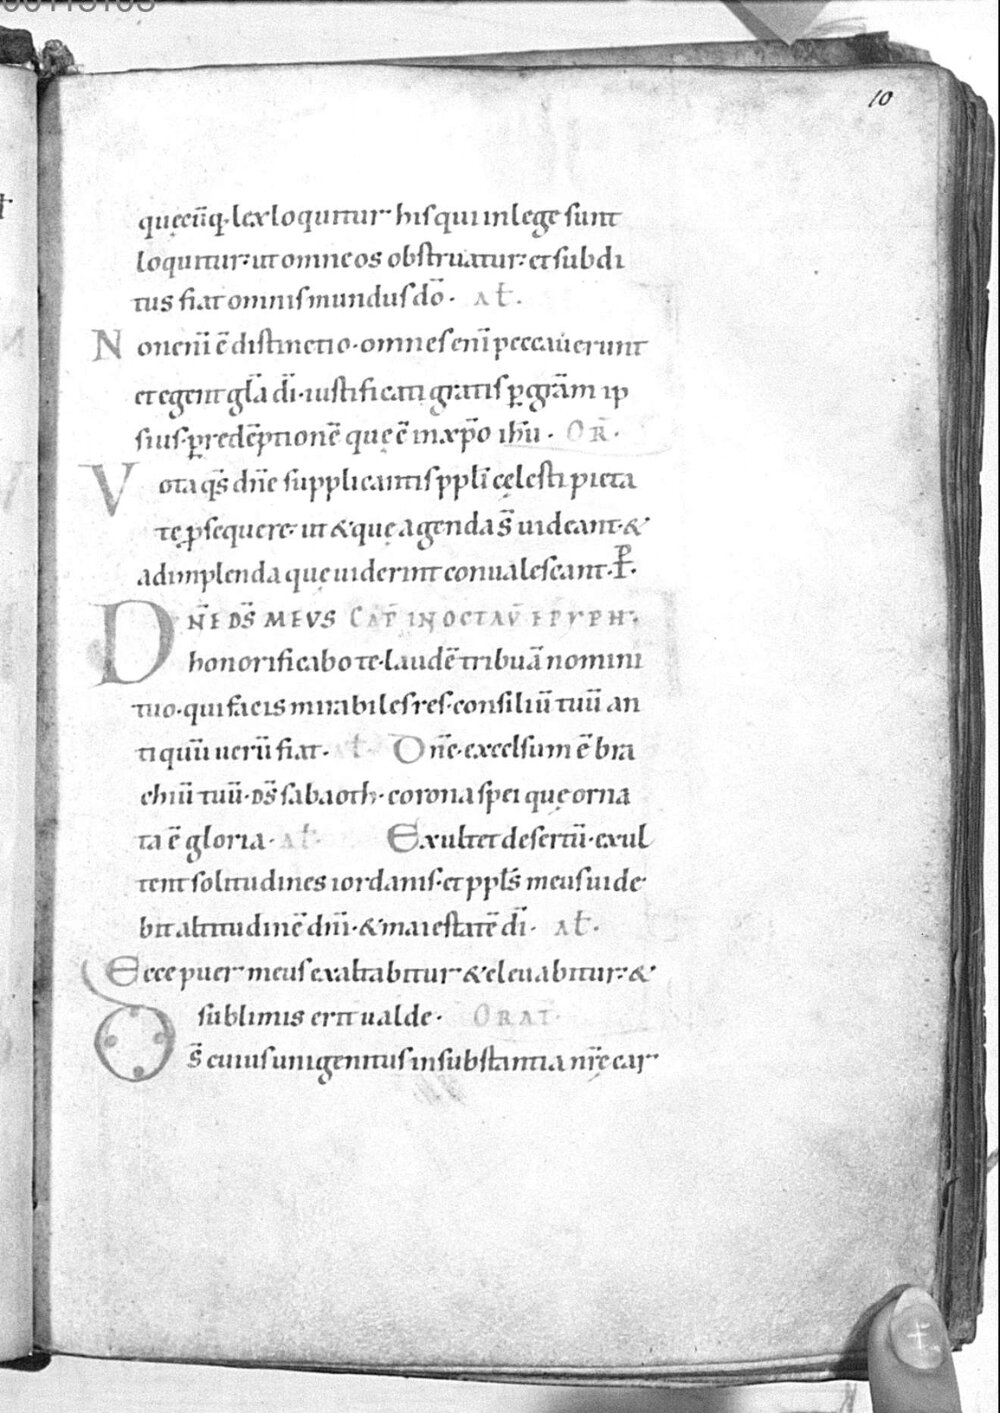 10
quęcu̅q; lex loquitur his qui in lege sunt
loquitur: ut omne os obstruatur: et subdi
tus fiat omnis mundus do̅. at̅.
Non eni̅ e̅ distinctio. omnes eni̅ peccauerunt
et egent gl̅a di̅. iustificati gratis ꝑ gra̅m ip
sius. ꝑ rede̅ptione̅ quę e̅ in xp̅o ih̅u. OR̅.
Vota qs̅ dn̅e supplicantis ppl̅i cęlesti pieta
te ꝓsequere. ut & quę agenda s̅ uideant. &
adimplenda quę uiderint conualescant. P̅.
DN̅E DS̅ MEVS CAP̅ IN OCTAV̅ EPYPH̅.
honorificabo te. laude̅ tribua̅ nomini
tuo. qui facis mirabiles res. consiliu̅ tuu̅ an
tiquu̅ ueru̅ fiat. at̅. Dn̅e. excelsum e̅ bra
chiu̅ tuu̅. ds̅ sabaoth. corona spei quę orna
ta e̅ gloria. at̅. Exultet desertu̅. exul
tent solitudines iordanis. et ppl̅s meus uide
bit altitudine̅ dn̅i. & maiestate̅ di̅. at̅.
Ecce puer meus exaltabitur & eleuabitur: &
sublimis erit ualde. ORAT̅.
Ds̅ cuius unigenitus in substantia nr̅ę car